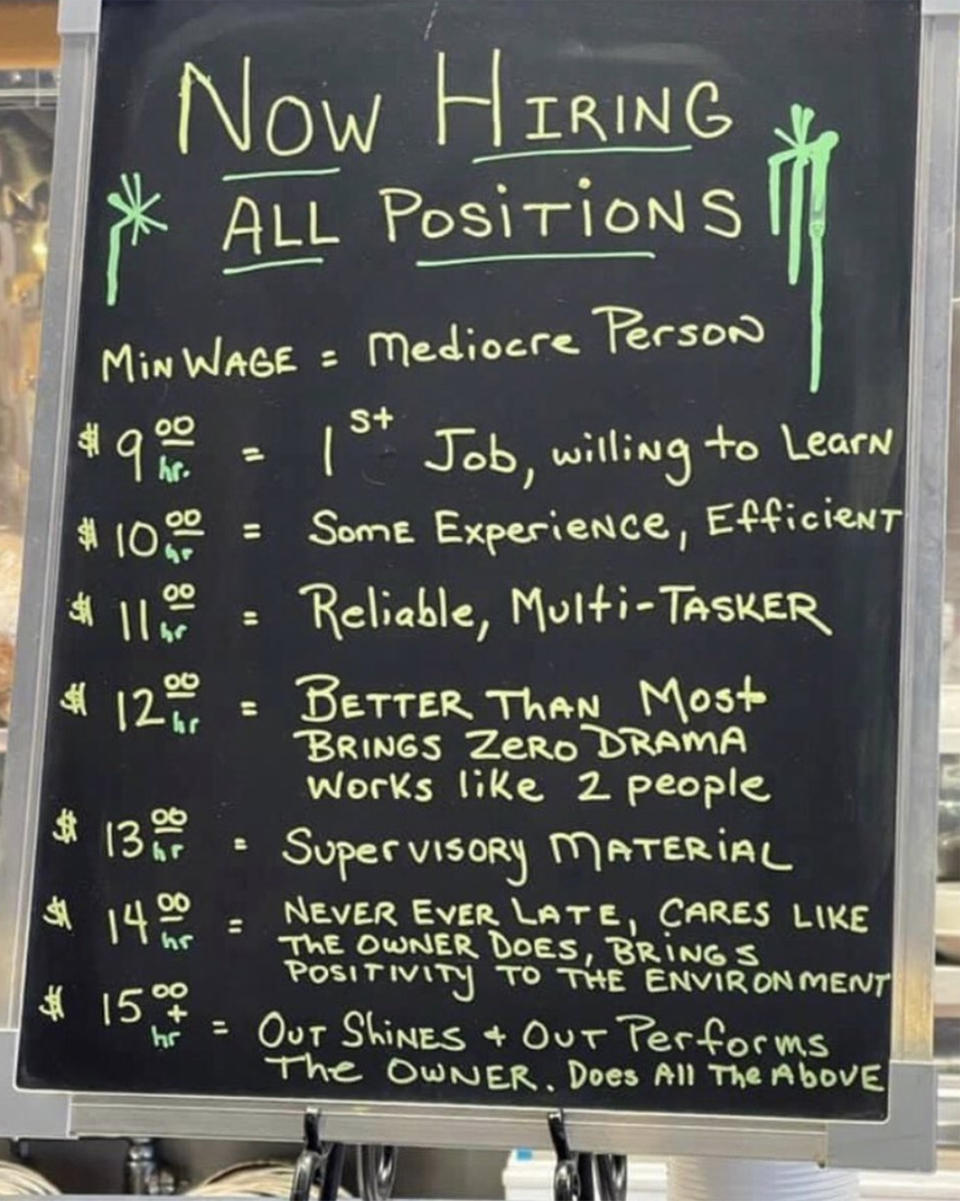 NOW HIRING
ALL POSITIONS
MIN WAGE = Mediocre Person
$ 9 00 hr. = 1st Job, willing to Learn
$ 10 00 hr = Some Experience, Efficient
$ 11 00 hr = Reliable, Multi-TASKER
$ 12 00 hr = BETTER THAN Most
BRINGS ZERO DRAMA
Works like 2 people
$ 13 00 hr = Supervisory MATERIAL
$ 14 00 hr = NEVER EVER LATE, CARES LIKE
THE OWNER DOES, BRINGS
POSITIVITY TO THE ENVIRONMENT
$ 15 00 + hr = Out Shines + Out Performs
The OWNER. Does All The Above